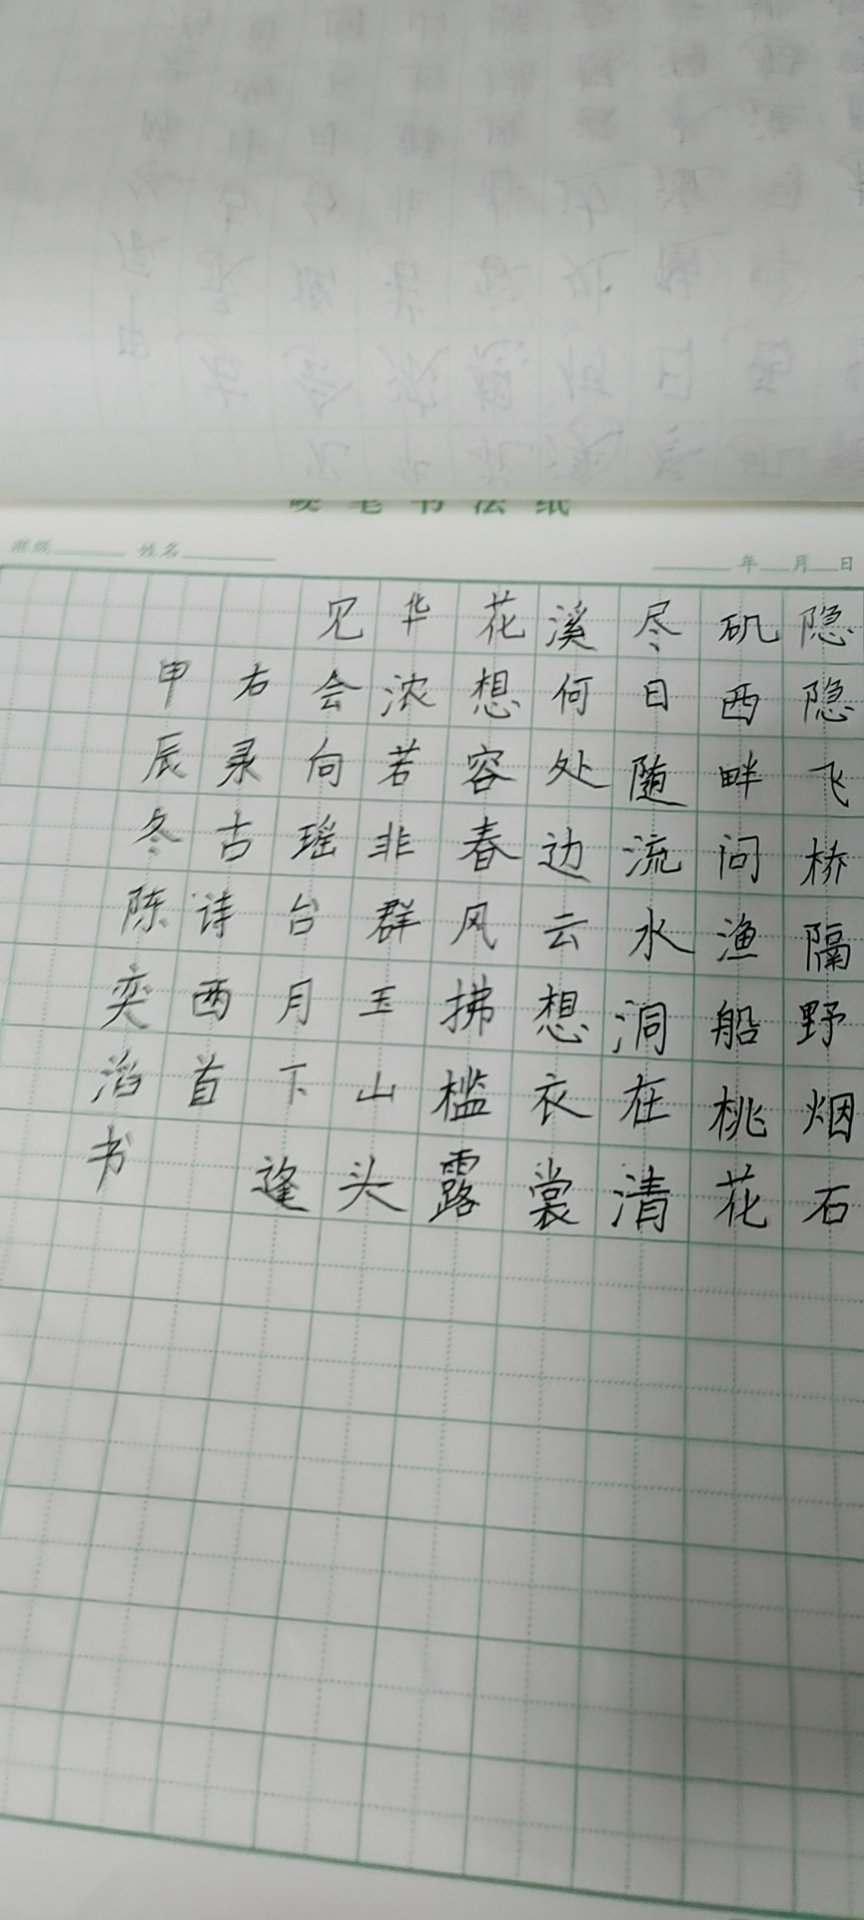 硬笔书法纸
班级 姓名 年 月 日
隐隐飞桥隔野烟石
矶西畔问渔船桃花
尽日随流水洞在清
溪何处边云想衣裳
花想容春风拂槛露
华浓若非群玉山头
见会向瑶台月下逢
右录古诗两首
甲辰冬陈奕滔书